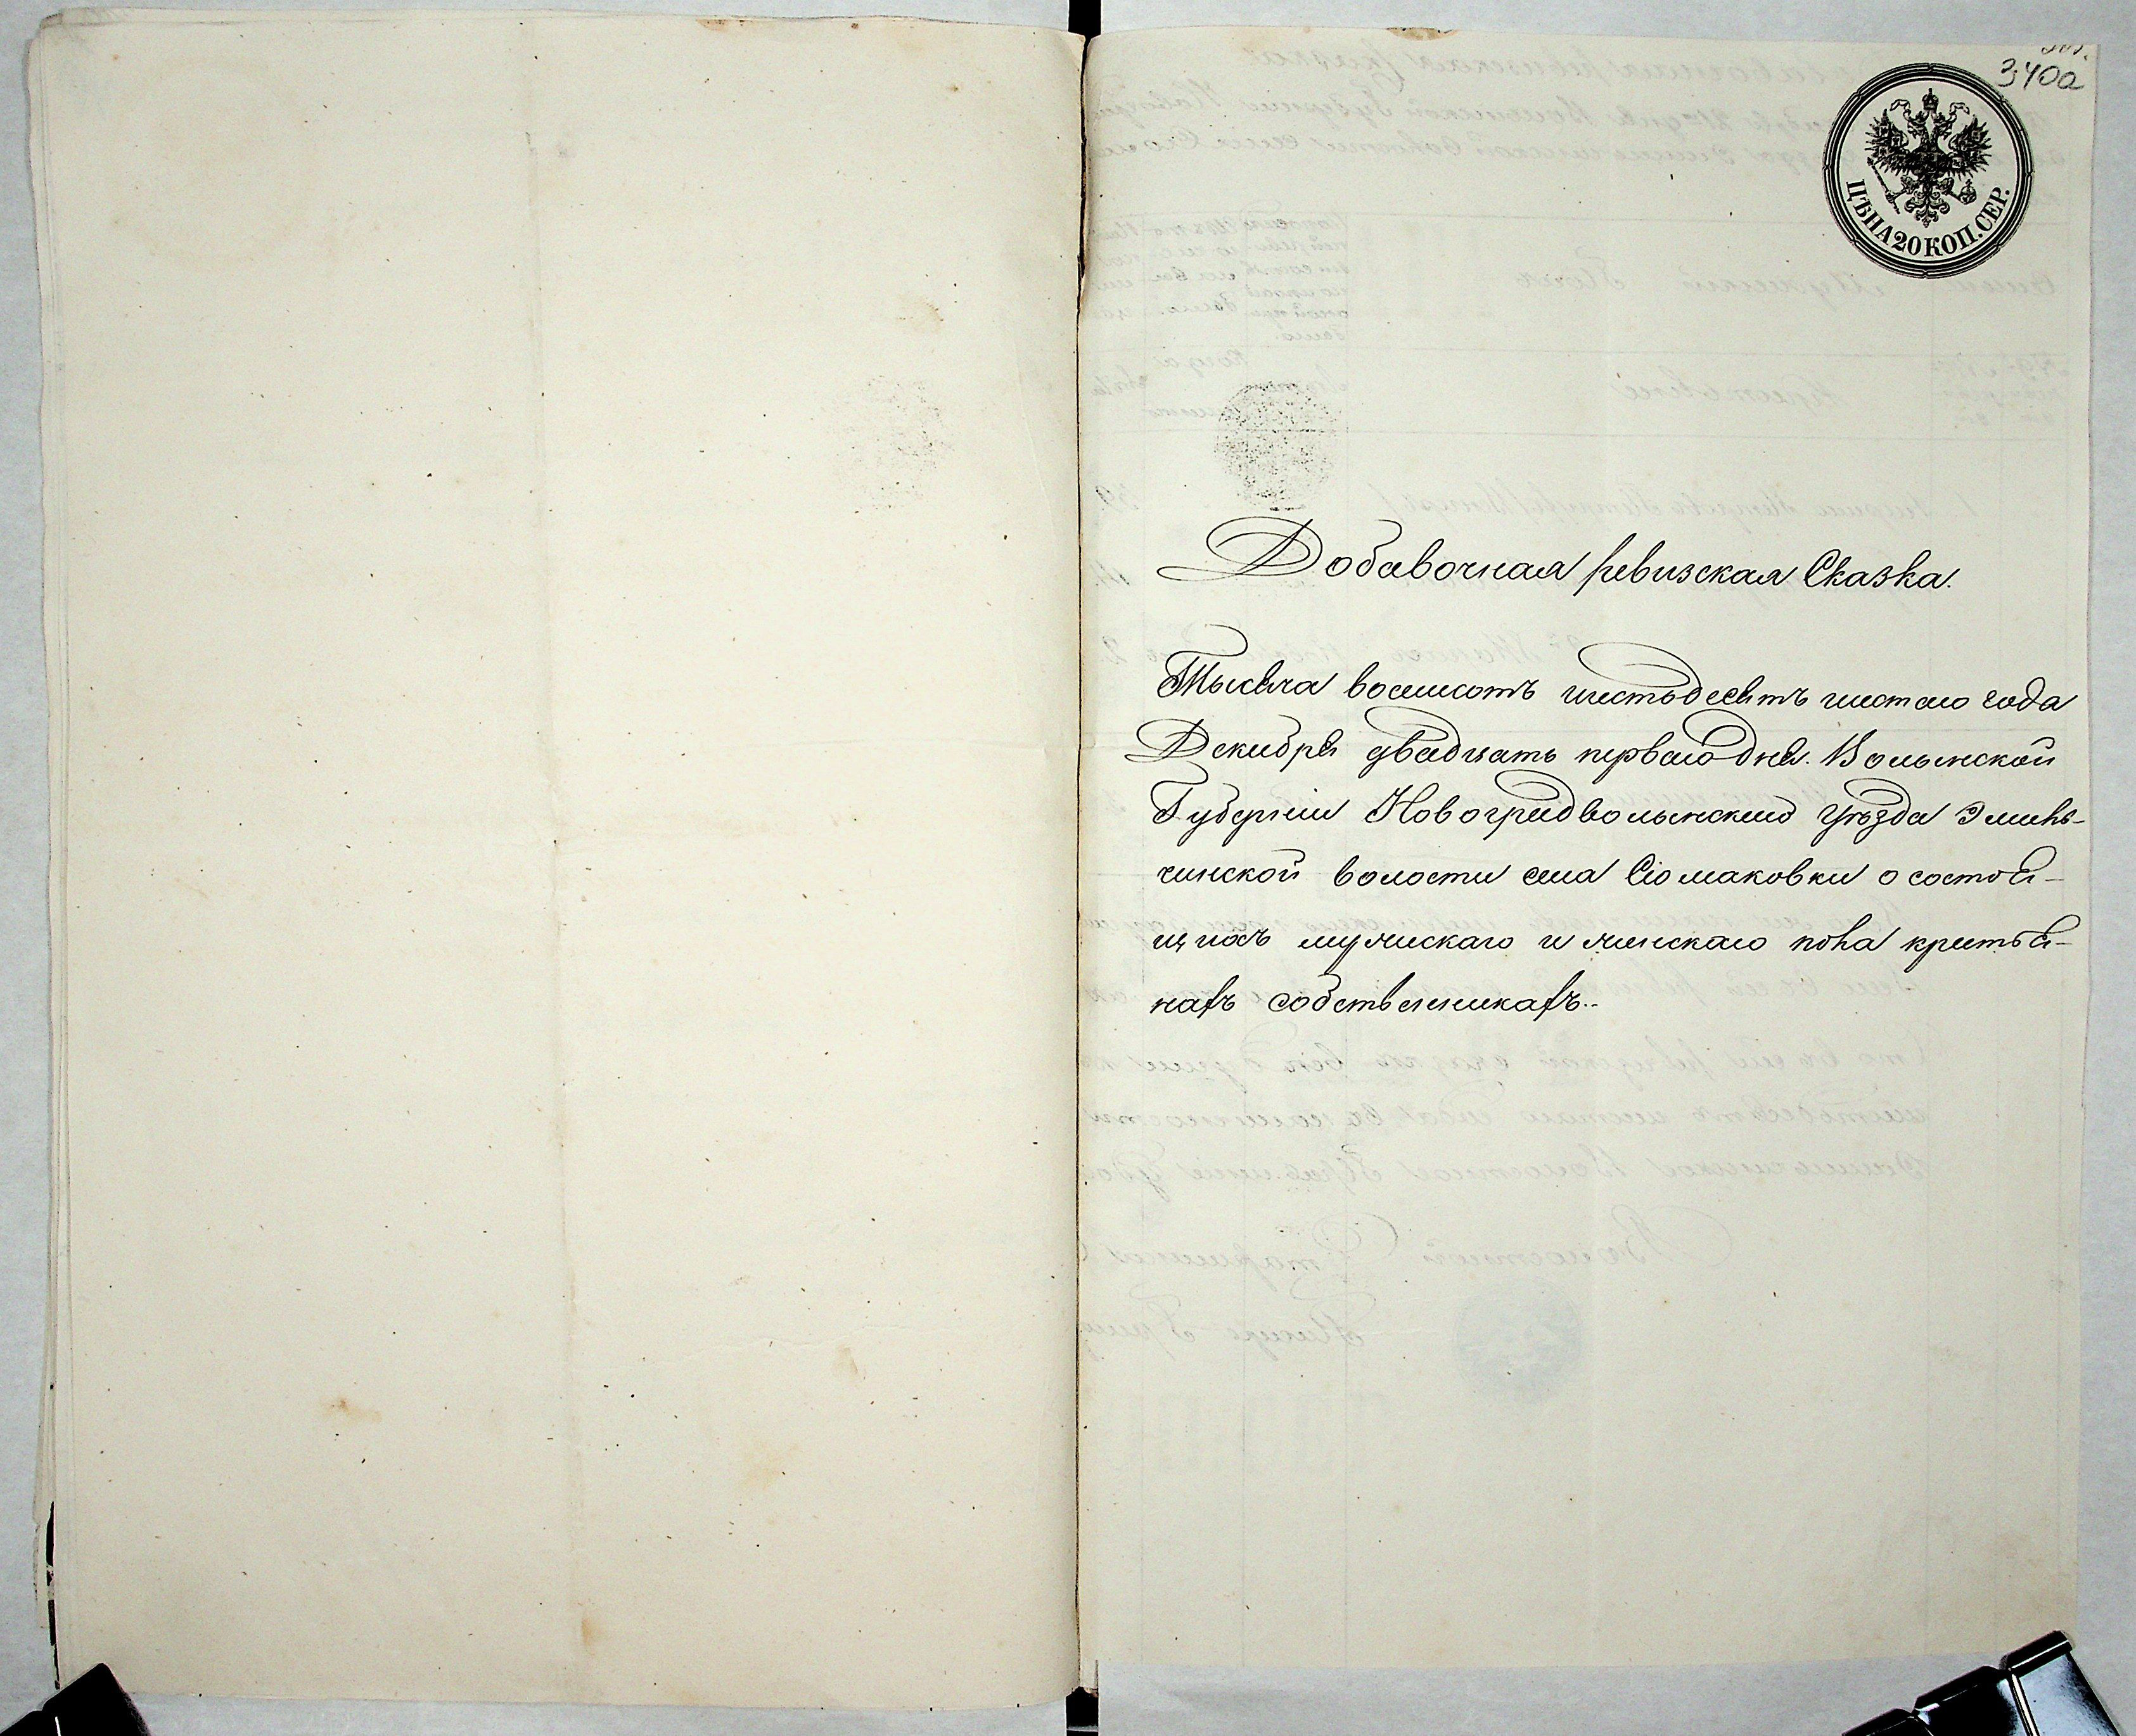 340а
ЦѢНА 20 КОП. СЕР.
Добавочная ревизская Сказка.
Тысяча восемсотъ шестьдесятъ шестого года
Декабря двадцать перваго дня. Волынской
Губерніи Новоградволынскаго уѣзда Эмиль-
чинской волости села Сіомаковки о состоя-
щихъ мужескаго и женскаго пола крестья-
нахъ собственникахъ.